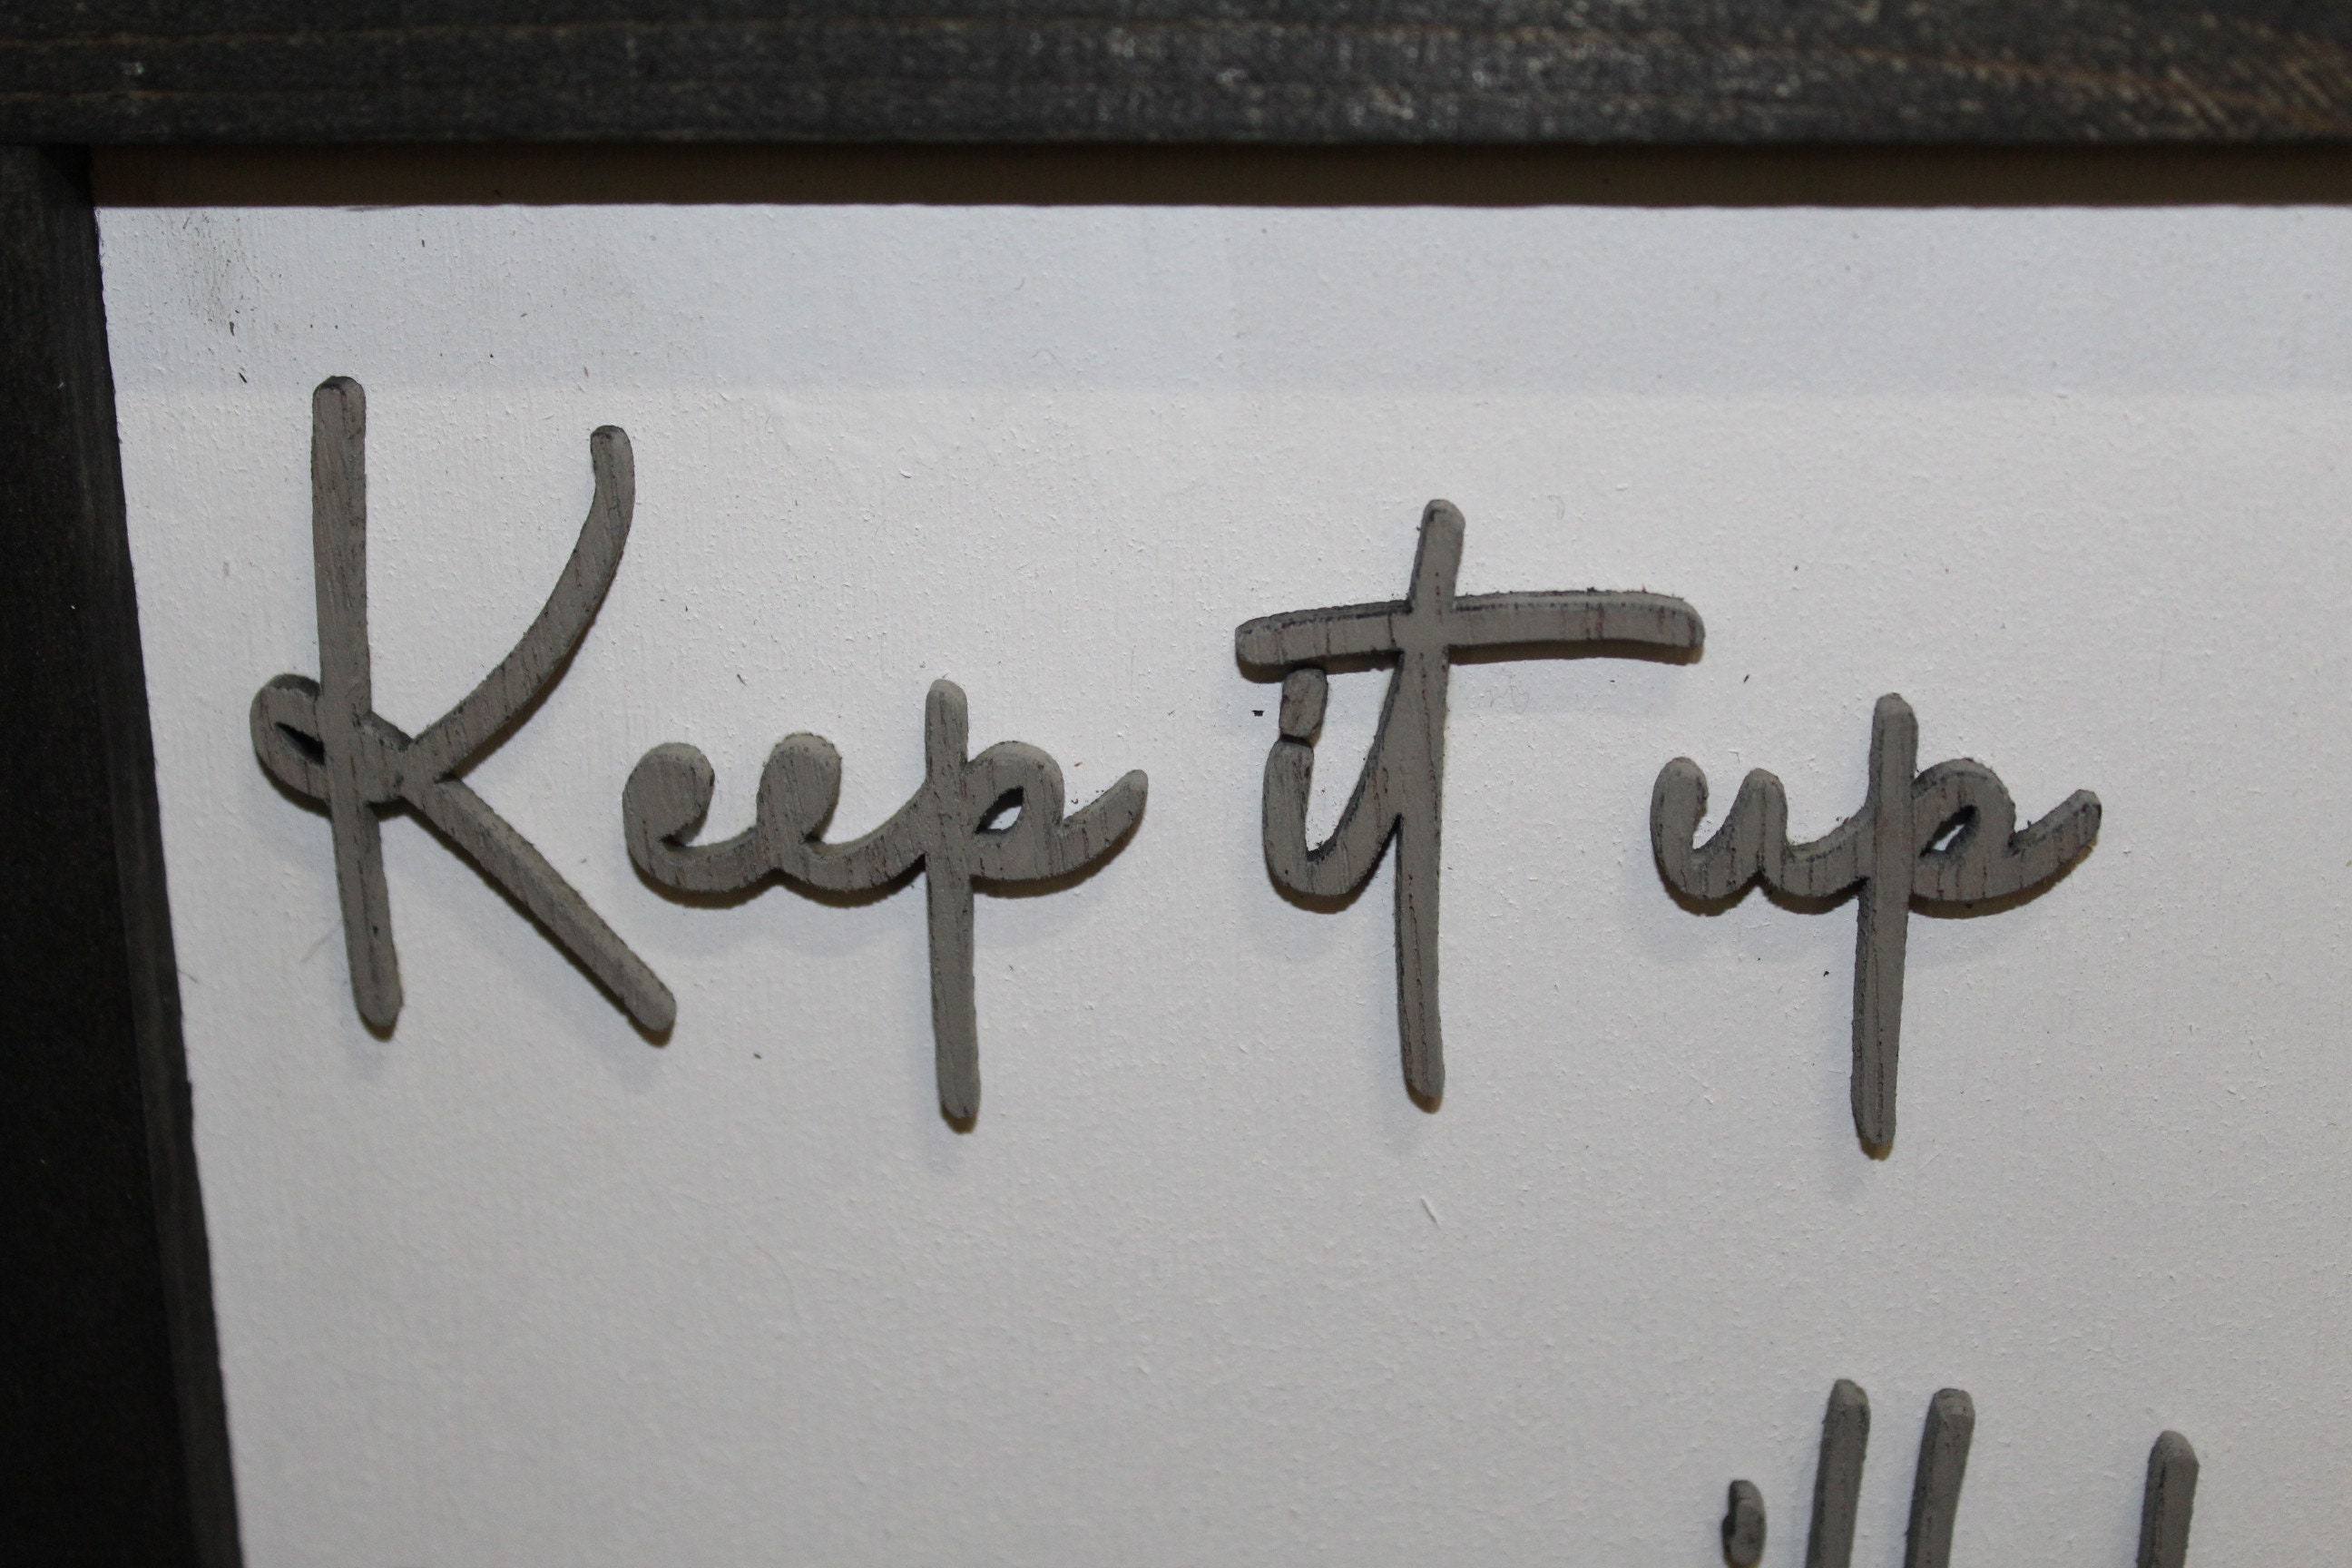 Keep it up